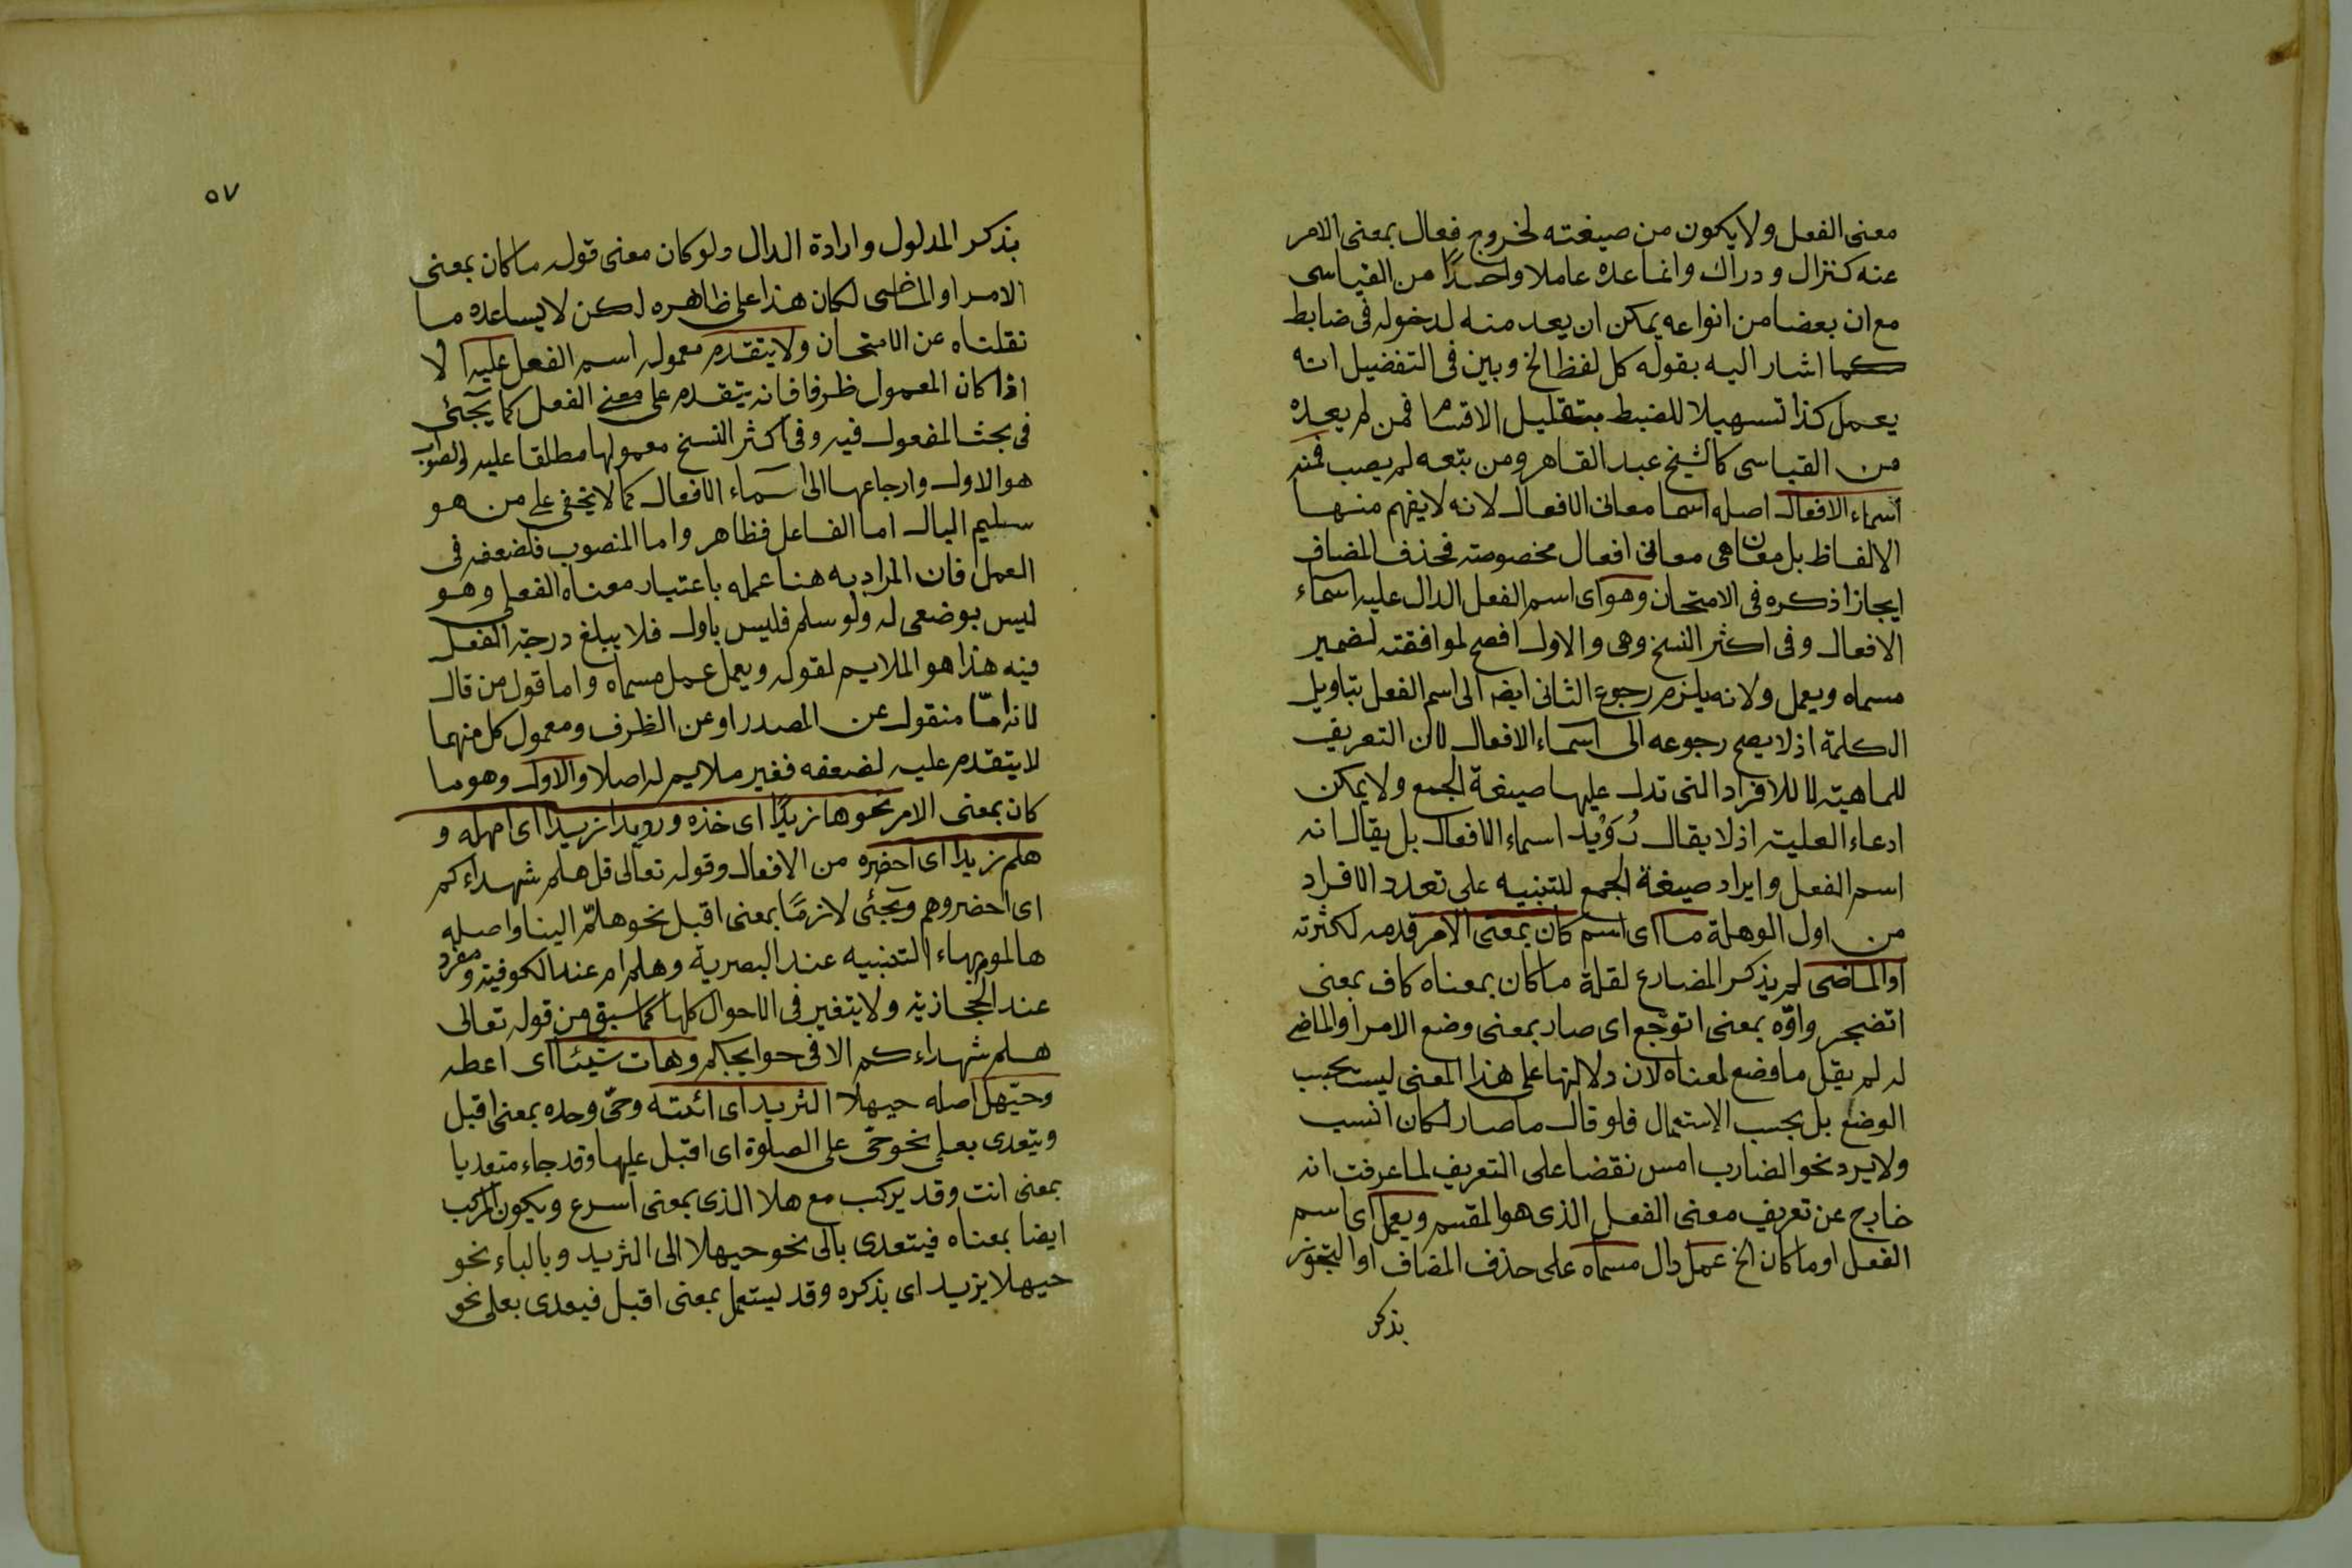 معنى الفعل ولا يكون من صيغته لخروج فعال بمعنى الامر
عنه كنزال ودراك وانما عده عاملا واحدًا من القياسى
مع ان بعضا من انواعه يمكن ان يعد منه لدخوله فى ضابط
كما اشار اليه بقوله كل لفظ الخ وبين فى التفضيل انه
يعمل كذا تسهيلا للضبط بتقليل الاقسام فمن لم يعده
من القياسى كالشيخ عبد القاهر ومن تبعه لم يصب فمنه
اسماء الافعال اصله اسما معانى الافعال لانه لا يفهم منها
الالفاظ بل معان هى معانى افعال مخصوصته فحذف المضاف
ايجازا ذكره فى الامتحان وهو اى اسم الفعل الدال عليه اسماء
الافعال وفى اكثر النسخ وهى والاول افصح لموافقته لضمير
مسماه ويعمل ولانه يلزم رجوع الثانى ايضا الى اسم الفعل بتاويل
الكلمة اذ لا يصح رجوعه الى اسماء الافعال لان التعريف
للماهيته لا للافراد التى تدل عليها صيغة الجمع ولا يمكن
ادعاء العلميته اذ لا يقال رُوَيْد اسماء الافعال بل يقال انه
اسم الفعل وايراد صيغة الجمع للتنبيه على تعدد الافراد
من اول الوهلة ما اى اسم كان بمعنى الامر قدمه لكثرته
او الماضى لم يذكر المضارع لقلة ما كان بمعناه كاف بمعنى
اتضجر واوّه بمعنى اتوجّع اى صار بمعنى وضع الامر او الماضى
له لم يقل ما وضع لمعناه لان دلالتها على هذا المعنى ليست بحسب
الوضع بل بحسب الاستعمال فلو قال ما صار لكان انسب
ولا يرد نحو الضارب امس نقضا على التعريف لما عرفت انه
خارج عن تعريف معنى الفعل الذى هو المقسم ويعمل اى اسم
الفعل او ما كان الخ عمل دال مسماه على حذف المضاف او التجوز
بذكر
٥٧
بذكر المدلول وارادة الدال ولو كان معنى قوله ما كان بمعنى
الامر او الماضى لكان هذا على ظاهره لكن لا يساعده ما
نقلناه عن الامتحان ولا يتقدم معموله اسم الفعل عليه الا
اذا كان المعمول ظرفا فانه يتقدم على معنى الفعل كما يجئى
فى بحث المفعول فيه وفى اكثر النسخ معمولها مطلقا عليه والصواب
هو الاول وارجاعها الى اسماء الافعال كما لا يخفى على من هو
سليم البال اما الفاعل فظاهر واما المنصوب فلضعفه فى
العمل فان المراد به هنا عمله باعتبار معناه الفعلى وهو
ليس بوضعى له ولو سلم فليس باول فلا يبلغ درجة الفعل
فيه هذا هو الملايم لقوله ويعمل عمل مسماه واما قول من قال
لانه امّا منقول عن المصدر او عن الظرف ومعمول كل منهما
لا يتقدم عليه لضعفه فغير ملايم له اصلا والاول وهو ما
كان بمعنى الامر نحو ها زيدًا اى خذه ورويدا زيدا اى امهله و
هلم زيدا اى احضره من الافعال وقوله تعالى قل هلم شهداءكم
اى احضروهم ويجئى لازمًا بمعنى اقبل نحو هلمّ الينا واصله
هالم بهاء التنبيه عند البصرية وهل ام عند الكوفيته ومفرد
عند الحجازيته ولا يتغير فى الاحوال كلها كما سبق من قوله تعالى
هلم شهداءكم الا فى حوايجكم وهات شيئا اى اعطه
وحيّهل اصله حيهلا الثريد اى ائته وحىّ وحده بمعنى اقبل
ويتعدى بعلى نحو حىّ على الصلوة اى اقبل عليها وقد جاء متعديا
بمعنى ائت وقد يركب مع هلا الذى بمعنى اسرع ويكون المركب
ايضا بمعناه فيتعدى بالى نحو حيهلا الى الثريد وبالباء نحو
حيهلا بزيد اى بذكره وقد يستعمل بمعنى اقبل فيعدى بعلى نحو